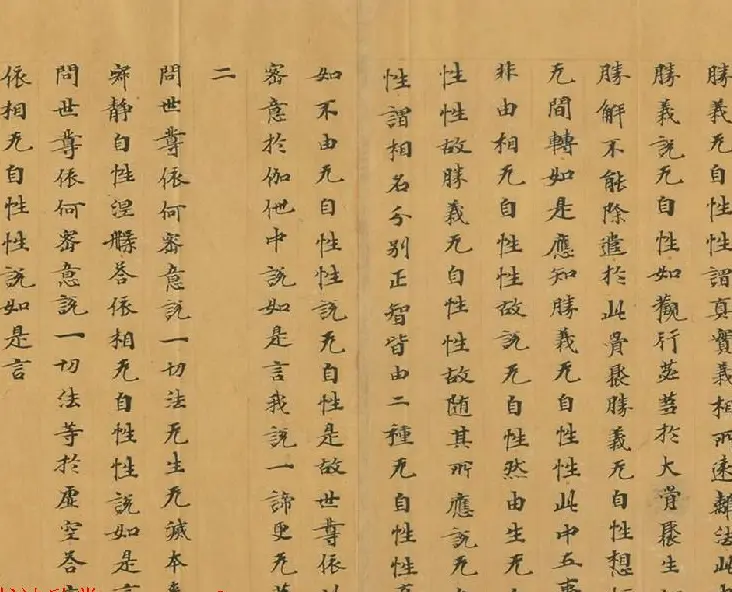 勝義无自性性謂真實義相所遠離法此
勝義説无自性如觀行苾芻於大骨聚生
勝解不能除遣於此骨聚勝義无自性想
无間轉如是應知勝義无自性性此中五事
非由相无自性性故説无自性然由生无
性性故勝義无自性性故随其所應説无
性謂相名分别正智皆由二種无自性性
如不由无自性性説无自性是故世尊依
密意於伽他中説如是言我説一諦更无
二
問世尊依何密意説一切法无生无滅本
寂静自性涅槃答依相无自性性説如是
問世尊依何密意説一切法等於虚空答
依相无自性性説如是言